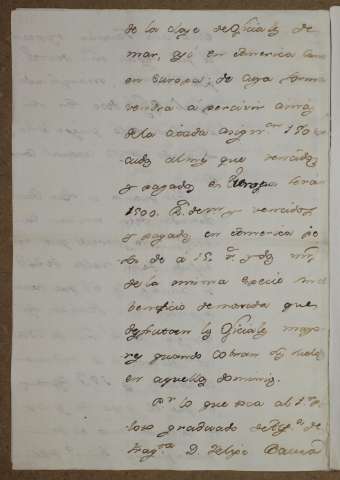 de la clase de oficiales de
mar, asi en America como
en Europa; de cuya forma
vendrá á percivir
de la citada asign.on 150
cudos al mes que vencidos
y pagados en Europa serán
1500 R.s de v.n y vencidos
y pagados en America
de á 15
de la misma especie sin el
beneficio de moneda que
disfrutan los oficiales mayo
res quando cobran sus sueldos
en aquellos dominios.
Por lo que toca al 1.o Pi
loto graduado de de
frag.ta D. Felipe Bauzá